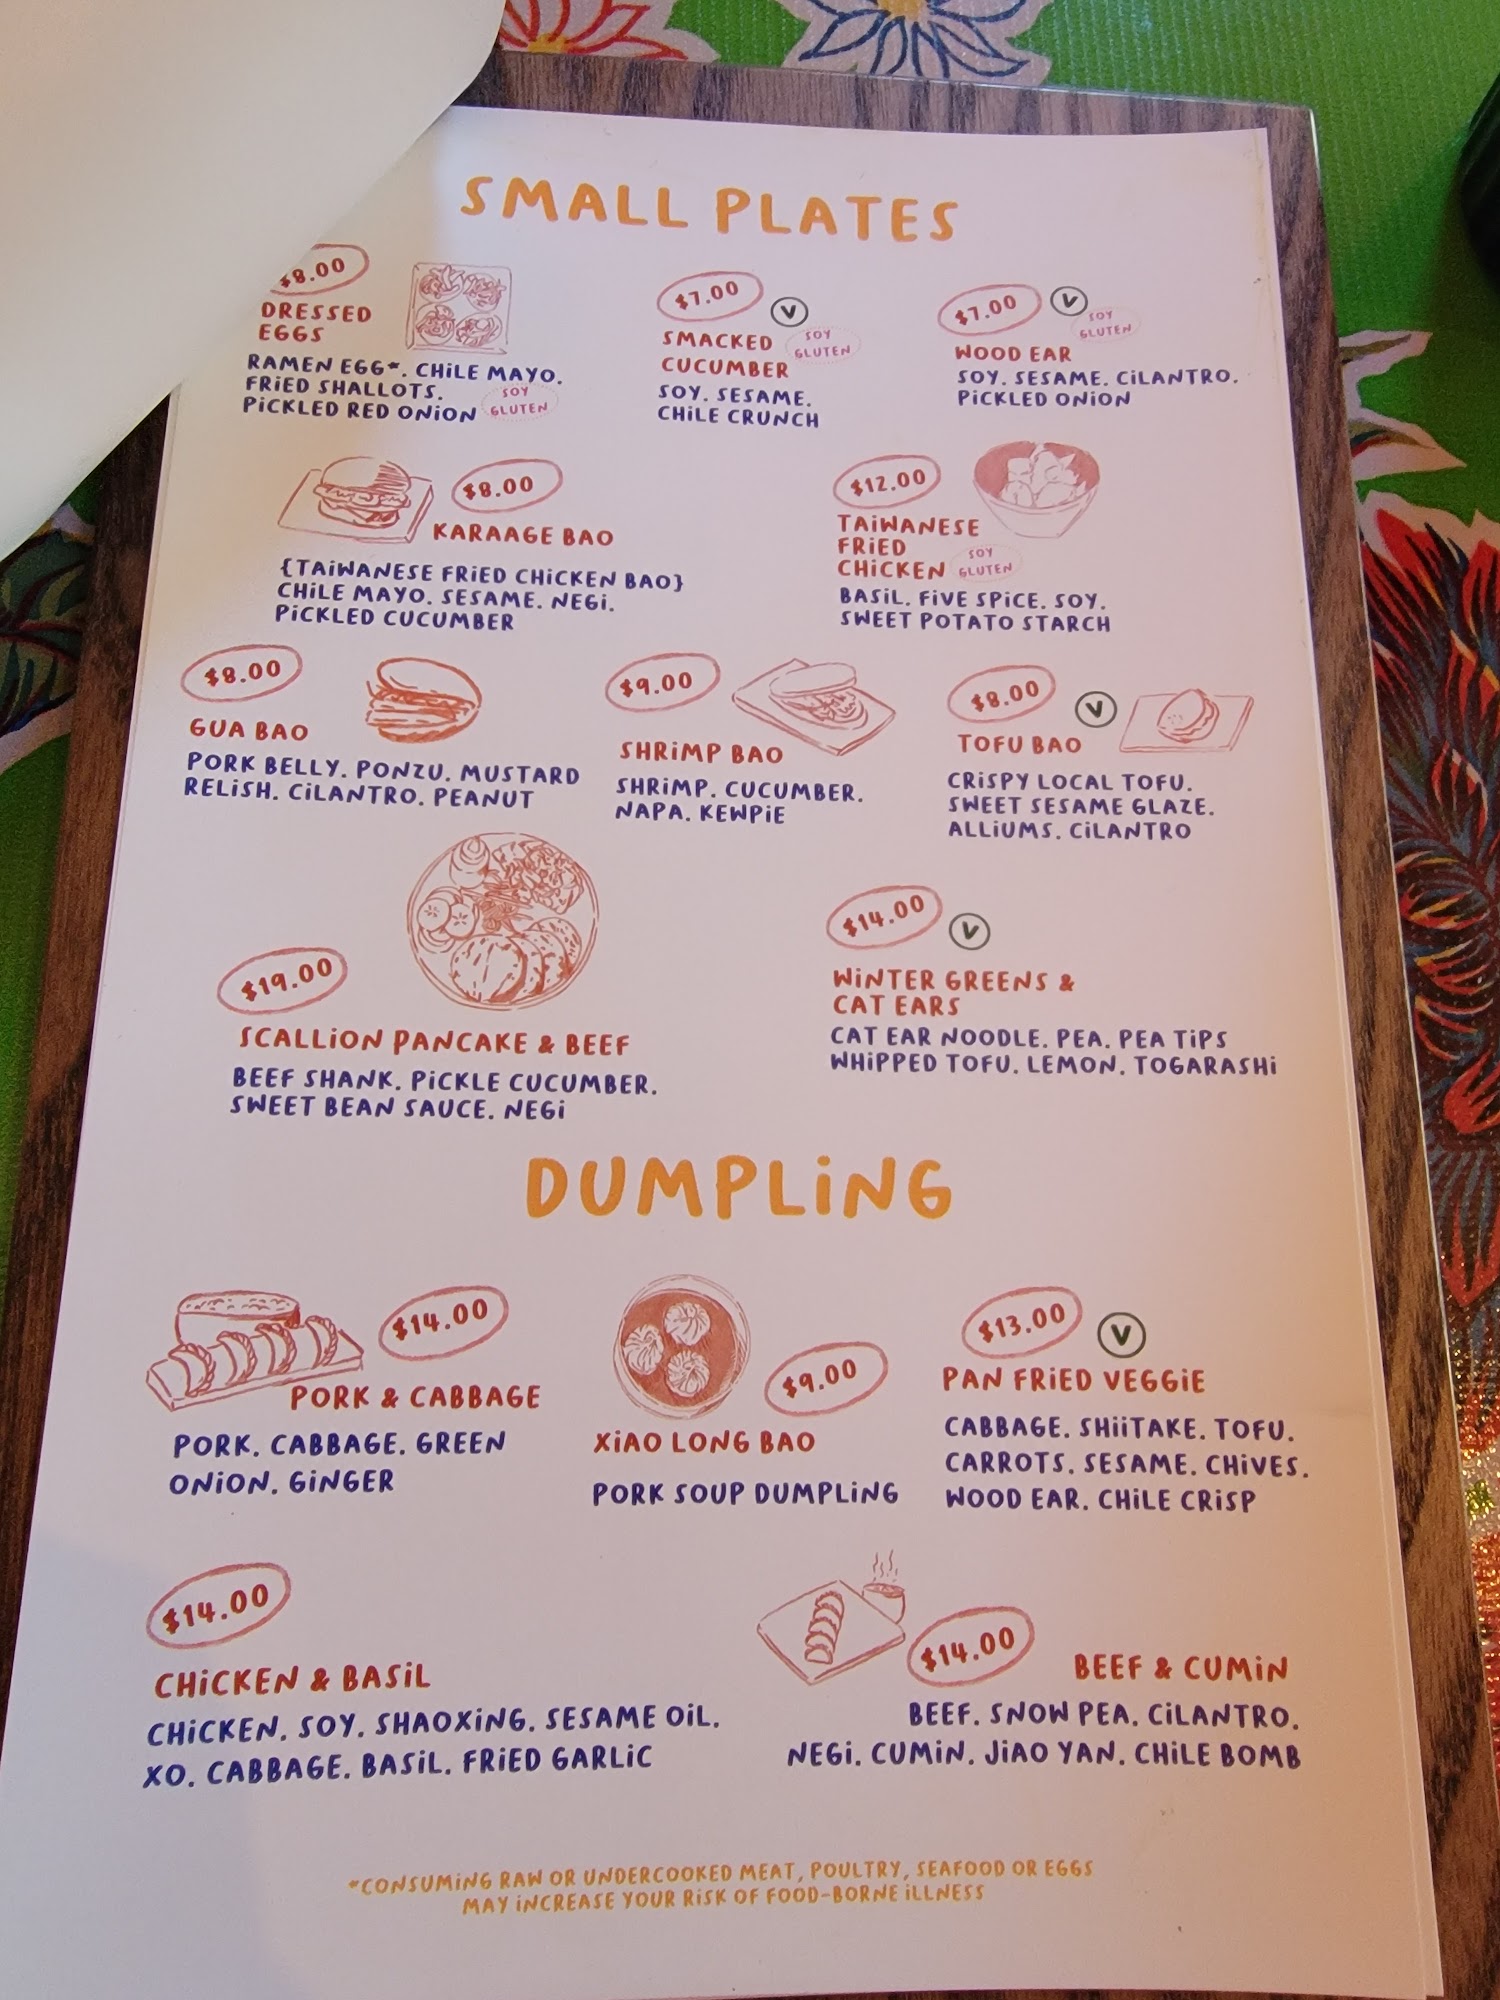 SMALL PLATES
$8.00
DRESSED
EGGS
RAMEN EGG*. CHiLE MAYO.
FRiED SHALLOTS.
PiCKLED RED ONiON
SOY
GLUTEN
$7.00
V
SMACKED
CUCUMBER
SOY
GLUTEN
SOY. SESAME.
CHiLE CRUNCH
$7.00
V
SOY
GLUTEN
WOOD EAR
SOY. SESAME. CiLANTRO.
PiCKLED ONiON
$8.00
KARAAGE BAO
{TAiWANESE FRiED CHiCKEN BAO}
CHiLE MAYO. SESAME. NEGi.
PiCKLED CUCUMBER
$12.00
TAiWANESE
FRiED
CHiCKEN
SOY
GLUTEN
BASiL. FiVE SPiCE. SOY.
SWEET POTATO STARCH
$8.00
GUA BAO
PORK BELLY. PONZU. MUSTARD
RELiSH. CiLANTRO. PEANUT
$9.00
SHRiMP BAO
SHRiMP. CUCUMBER.
NAPA. KEWPiE
$8.00
V
TOFU BAO
CRiSPY LOCAL TOFU.
SWEET SESAME GLAZE.
ALLiUMS. CiLANTRO
$19.00
SCALLiON PANCAKE & BEEF
BEEF SHANK. PiCKLE CUCUMBER.
SWEET BEAN SAUCE. NEGi
$14.00
V
WiNTER GREENS &
CAT EARS
CAT EAR NOODLE. PEA. PEA TiPS
WHiPPED TOFU. LEMON. TOGARASHi
DUMPLiNG
$14.00
PORK & CABBAGE
PORK. CABBAGE. GREEN
ONiON. GiNGER
$9.00
XiAO LONG BAO
PORK SOUP DUMPLiNG
$13.00
V
PAN FRiED VEGGiE
CABBAGE. SHiiTAKE. TOFU.
CARROTS. SESAME. CHiVES.
WOOD EAR. CHiLE CRiSP
$14.00
CHiCKEN & BASiL
CHiCKEN. SOY. SHAOXiNG. SESAME OiL.
XO. CABBAGE. BASiL. FRiED GARLiC
$14.00
BEEF & CUMiN
BEEF. SNOW PEA. CiLANTRO.
NEGi. CUMiN. JiAO YAN. CHiLE BOMB
*CONSUMiNG RAW OR UNDERCOOKED MEAT, POULTRY, SEAFOOD OR EGGS
MAY iNCREASE YOUR RiSK OF FOOD-BORNE iLLNESS